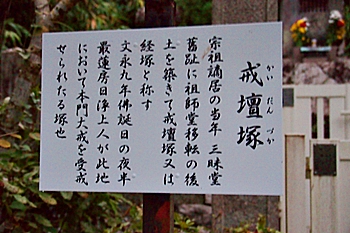 戒壇塚
かいだんづか
宗祖謫居の当年 三昧堂
舊趾に祖師堂移転の後
土を築きて戒壇塚又は
経塚と称す
文永九年佛誕日の夜半
最蓮房日浄上人が此地
において本門大戒を受戒
せられたる塚也